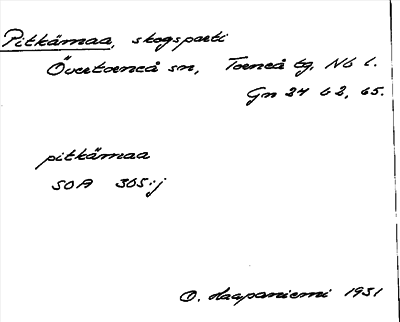 Pitkämaa, skogsparti
Övertorneå sn, Torneå tg, Nb l.
Gn 24 62, 65.
pitkämaa
SOA 305:j
O. Haapaniemi 1931